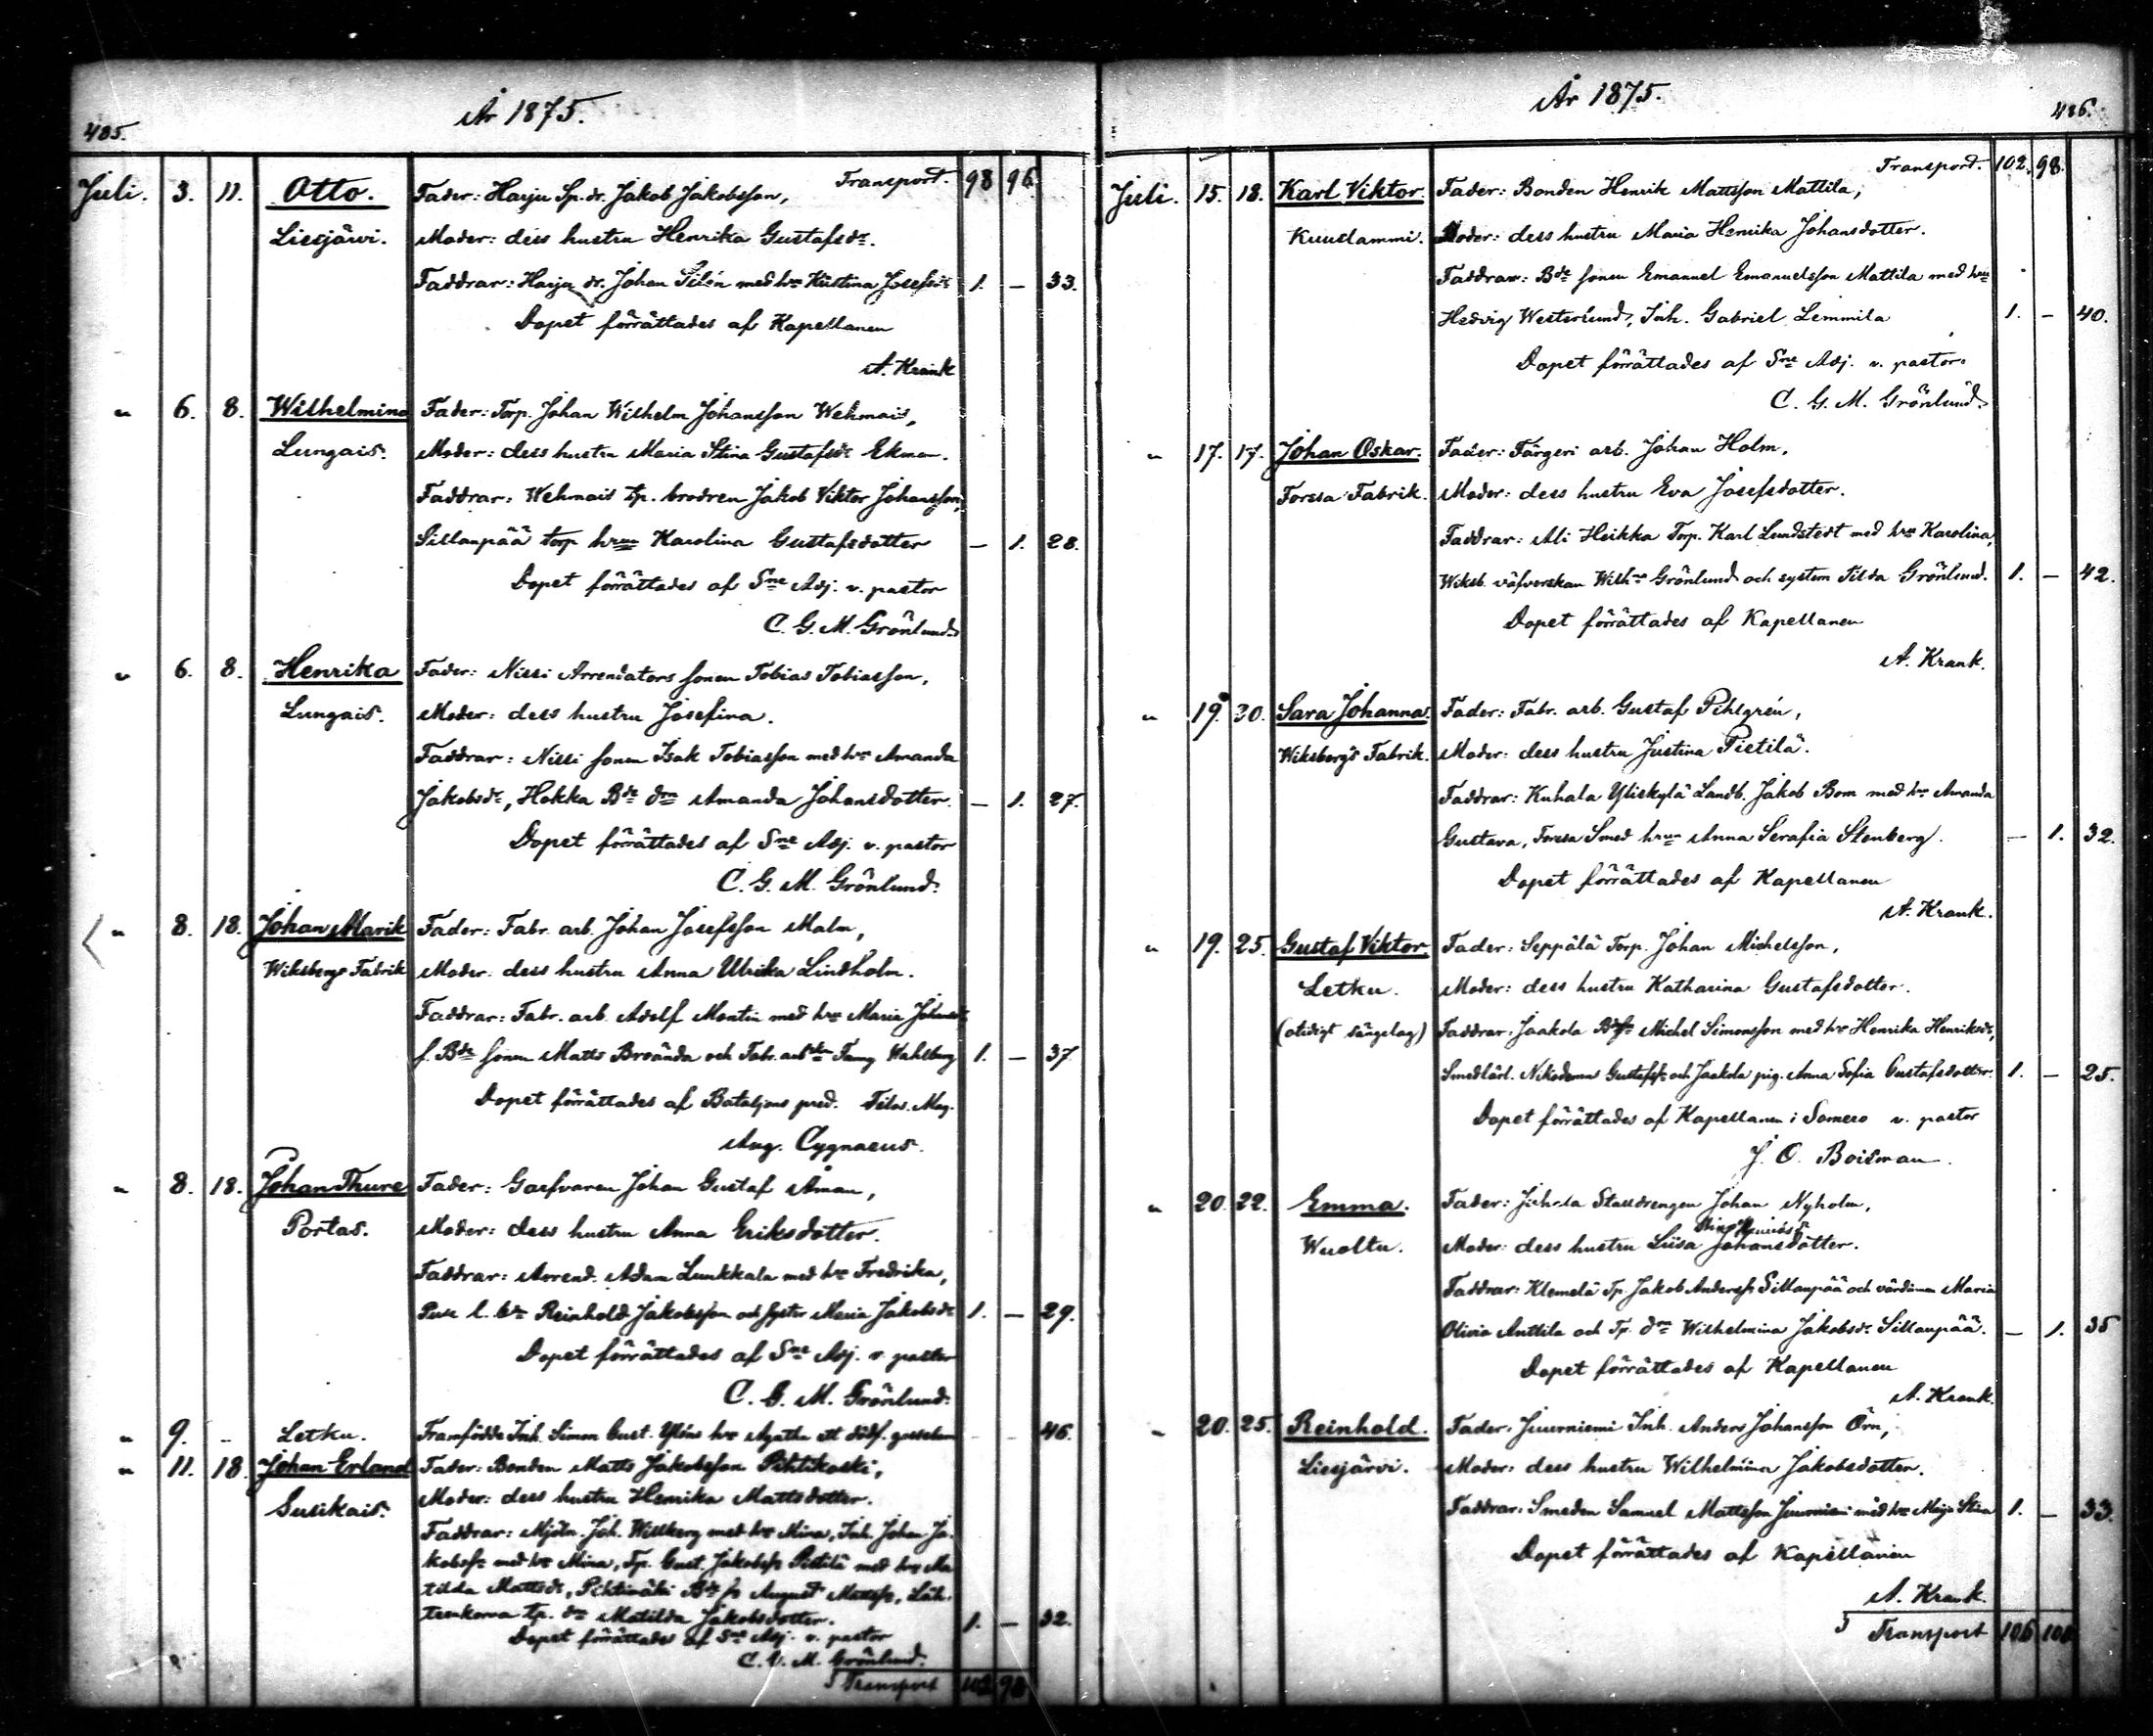 485.
År 1875.
Transport. 98 96
Juli. 3. 11. Otto. Fader: Harju Sp. dr. Jakob Jakobsson,
Liesjärvi. Moder: dess hustru Henrika Gustafsdr.
Faddrar: Harju dr. Johan Silén med hu Kristina Josefsdr 1. — 33.
Dopet förrättades af Kapellanen
A. Krank
" 6. 8. Wilhelmina Fader: Torp. Johan Wilhelm Johansson Wehmais,
Lungais. Moder: dess hustru Maria Stina Gustafsdr Ekman.
Faddrar: Wehmais tp. brodren Jakob Viktor Johansson,
Sillanpää torp hrun Karolina Gustafsdotter — 1. 28.
Dopet förrättades af Sne Adj. v. pastor
C. G. M. Grönlund.
" 6. 8. Henrika Fader: Nissi Arrendators sonen Tobias Tobiasson,
Lungais. Moder: dess hustru Josefina.
Faddrar: Nissi sonen Isak Tobiasson med hu Amanda
Jakobsdr, Hokka Bde drn Amanda Johansdotter. — 1. 27.
Dopet förrättades af Sne Adj. v. pastor
C. G. M. Grönlund.
" 8. 18. Johan Marik Fader: Fabr. arb. Johan Josefsson Malm,
Wiksbergs Fabrik Moder: dess hustru Anna Ulrika Lindholm.
Faddrar: Fabr. arb. Adolf Montin med hu Maria Johansdr
f. Bde sonen Matts Broända och Fabr. arbskn Fanny Wahlberg 1. — 37
Dopet förrättades af Bataljons pred. Filos. Mag.
Aug. Cygnaeus.
" 8. 18. Johan Thure Fader: Garfvaren Johan Gustaf Åman,
Portas. Moder: dess hustru Anna Eriksdotter.
Faddrar: Arrend. Adam Lunkkala med hu Fredrika,
Reinhold Jakobsson och syster Maria Jakobsdr 1. — 29.
Dopet förrättades af Sne Adj. v. pastor
C. G. M. Grönlund.
" 9. - Letku. Framfödde Inh. Simon Gust. Yléns hu Agatha ett dödf. gossebarn - - 46.
" 11. 18. Johan Erland Fader: Bonden Matts Jakobsson Pihtikoski,
Susikais. Moder: dess hustru Henrika Mattsdotter.
Faddrar: Mjöln. Joh. Willberg med hu Mina, Inh. Johan Ja-
kobss. med hu Mina, Tp. Gust. Jakobss. Pietilä med hu Ma
tilda Mattsdr, Bde August Mattss., Läh-
teenkorva tp. dr Matilda Jakobsdotter. 1. — 32.
Dopet förrättades af Sne Adj. v. pastor
C. G. M. Grönlund.
Transport 102 98
År 1875.
486.
Transport. 102. 98.
Juli. 15. 18. Karl Viktor. Fader: Bonden Henrik Mattsson Mattila,
Kuuslammi. Moder: dess hustru Maria Henrika Johansdotter.
Faddrar: Bde sonen Emanuel Emanuelsson Mattila med hun
Hedvig Westerlund, Inh. Gabriel Lemmila 1. — 40.
Dopet förrättades af Sne Adj. v. pastor
C. G. M. Grönlund.
" 17. 17. Johan Oskar. Fader: Färgeri arb. Johan Holm,
Forssa Fabrik. Moder: dess hustru Eva Josefsdotter.
Faddrar: Ali Heikka Torp. Karl Lundstedt med hu Karolina,
Wiksb. väfverskan Wilhna Grönlund och systern Tilda Grönlund. 1. — 42.
Dopet förrättades af Kapellanen
A. Krank.
" 19. 30. Sara Johanna. Fader: Fabr. arb. Gustaf Pihlgrén,
Wiksbergs Fabrik. Moder: dess hustru Justina Pietilä.
Faddrar: Kuhala Yliskylä Landb. Jakob Bom med hu Amanda
Gustava, Forssa Smed hrun Anna Serafia Stenberg. — 1. 32.
Dopet förrättades af Kapellanen
A. Krank.
" 19. 25. Gustaf Viktor. Fader: Seppälä Torp. Johan Michelsson,
Letku. Moder: dess hustru Katharina Gustafsdotter.
(otidigt sängelag) Faddrar: Jaakola Michel Simonsson med hu Henrika Henriksdr,
Smedlärl. Nikodemus Gustafss. och Jaakola pig. Anna Sofia Gustafsdotter. 1. — 25.
Dopet förrättades af Kapellanen i Somero v. pastor
J. O. Boisman.
" 20. 22. Emma. Fader: Stalldrengen Johan Nyholm,
Wuoltu. Moder: dess hustru Liisa Johansdotter.
Faddrar: Klemelä Tp. Jakob Anderss. Sillanpää och värdinnan Maria
Olivia Anttila och Tp. drn Wilhelmina Jakobsdr Sillanpää. — 1. 35
Dopet förrättades af Kapellanen
A. Krank.
" 20. 25. Reinhold. Fader: Juurniemi Inh. Anders Johansson Örn,
Liesjärvi. Moder: dess hustru Wilhelmina Jakobsdotter.
Faddrar: Smeden Samuel Mattsson Juurniemi med hu Maja Stina 1. — 33.
Dopet förrättades af Kapellanen
A. Krank.
Transport 106 100